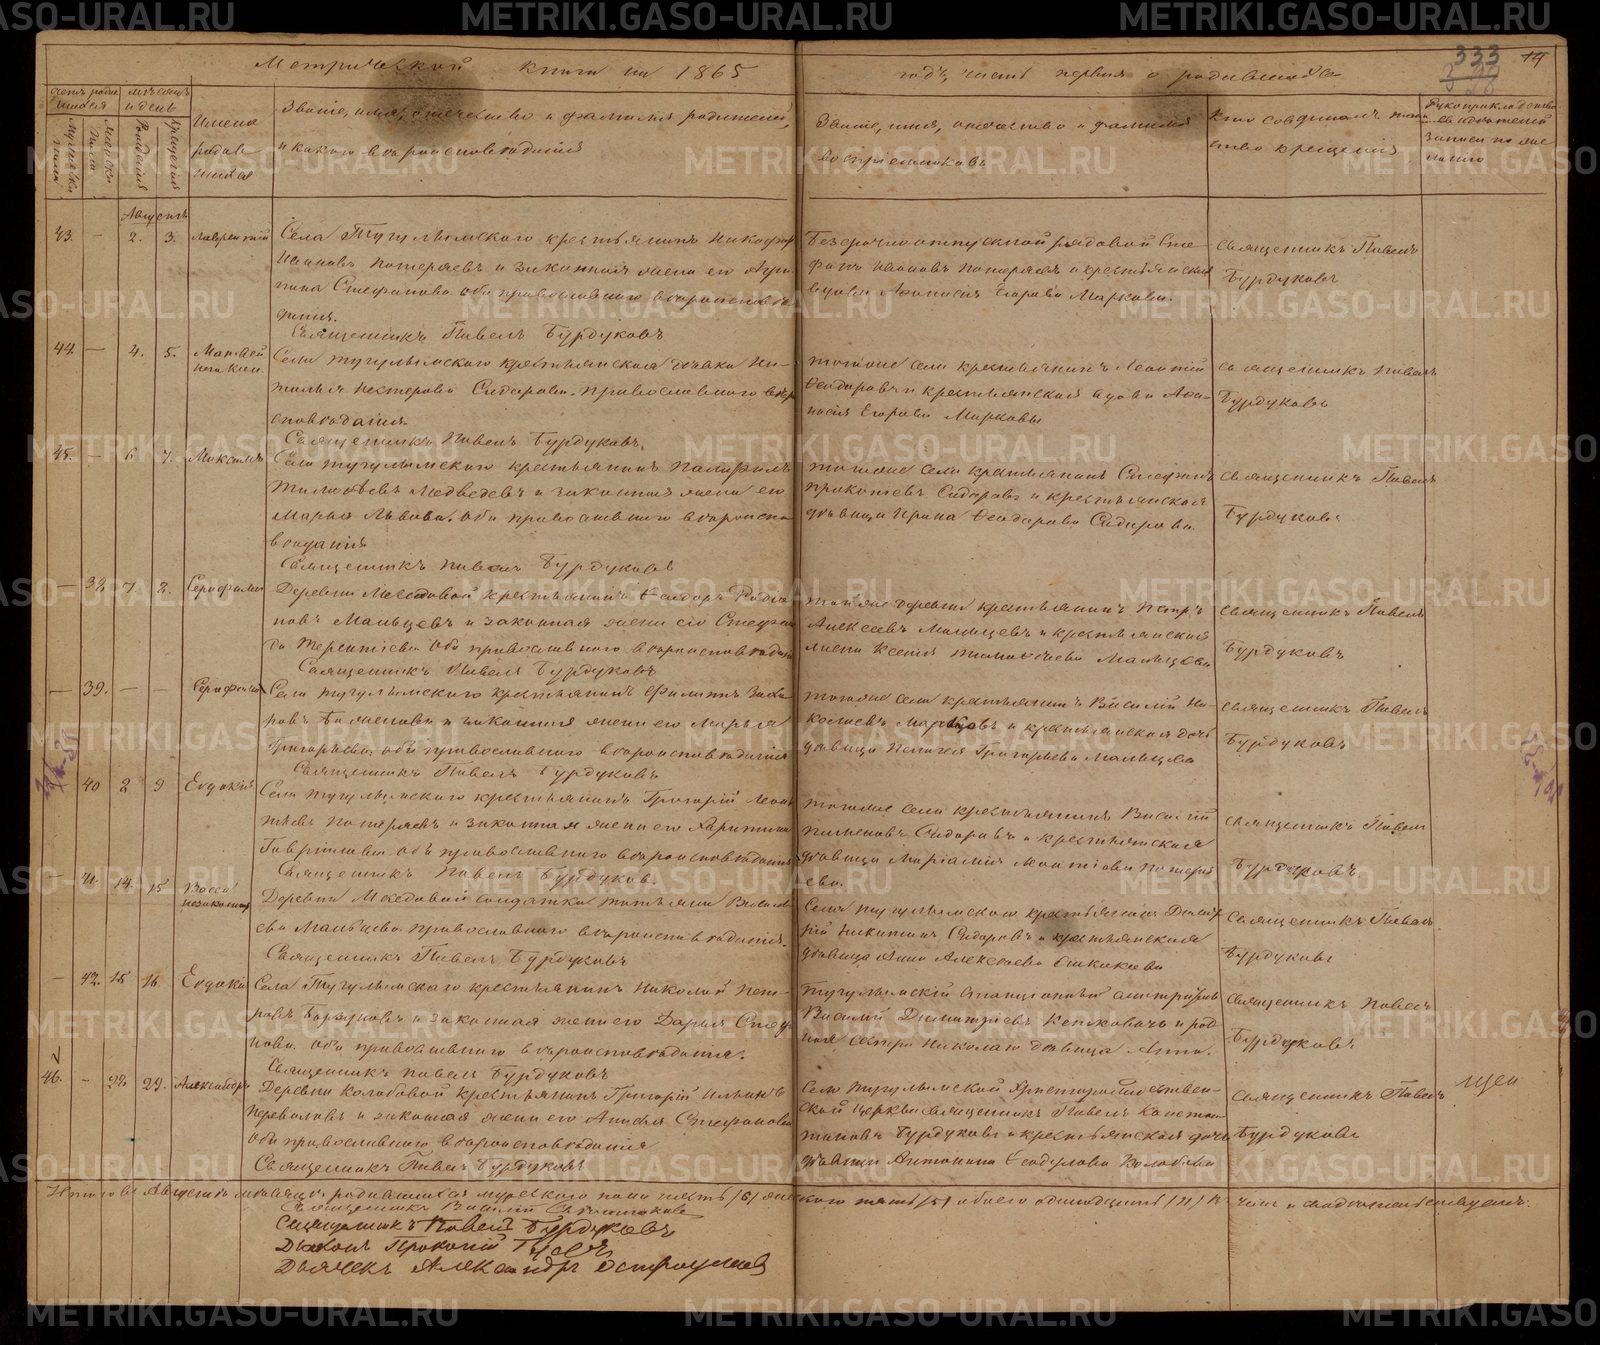 Метрической книги на 1865
годъ, часть первая о родившихся
333
14
Счетъ родившихся
Мѣсяцъ и день
Мужеска пола
Женска пола
Рожденія
Крещенія
Имена родившихся
Званіе, имя, отечество и фамилія родителей,
и какого вѣроисповѣданія
Званіе, имя, отечество и фамилія
воспріемниковъ
Кто совершалъ таинство крещенія
Рукоприкладство свидѣтелей записи по желанію
Августъ
43. — 2. 3. Лаврентій
Села Тугулымскаго крестьянинъ Никифоръ
Ивановъ Потеряевъ и законная жена его Агри-
пина Стефанова оба православнаго вѣроисповѣ-
данія.
Священникъ Павелъ Бурдуковъ
Безсрочноотпускной рядовой Сте-
фанъ Ивановъ Потеряевъ и крестьянская
вдова Афанасія Егорова Маркова.
Священникъ Павелъ
Бурдуковъ
44. — 4. 5. Матѳей незакон.
Села Тугулымскаго крестьянская дочь На-
талья Нестерова Сидорова. православнаго вѣро-
исповѣданія.
Священникъ Павелъ Бурдуковъ.
тогоже села крестьянинъ Леонтій
Ѳеодоровъ и крестьянская вдова Афа-
насія Егорова Маркова
Священникъ Павелъ
Бурдуковъ
45. — 6 7. Максимъ
Села Тугулымскаго крестьянинъ Панфилъ
Тимоѳеевъ Медведевъ и законная жена его
Марья Львова. Оба православнаго вѣроиспо-
вѣданія
Священникъ Павелъ Бурдуковъ
тогоже села крестьянинъ Стефанъ
Прокопьевъ Сидоровъ и крестьянская
дѣвица Ирина Ѳеодорова Сидорова
Священникъ Павелъ
Бурдуковъ
— 38. 7. 2. Серафима
Деревни крестьянинъ Ѳеодоръ Родіо-
новъ Мальцевъ и законная жена его Стефани-
да Терентіева Оба православнаго вѣроисповѣданія
Священникъ Павелъ Бурдуковъ
тойже деревни крестьянинъ Петръ
Алексѣевъ Мальцевъ и крестьянская
жена Ксенія Тимоѳеева Мальцова
Священникъ Павелъ
Бурдуковъ
— 39. — — Серафима
Села Тугулымскаго крестьянинъ Филиппъ Заха-
ровъ и законная жена его Марья
Григорьева, оба православнаго вѣроисповѣданія
Священникъ Павелъ Бурдуковъ
тогоже села крестьянинъ Василій Ни-
колаевъ и крестьянская дочь
дѣвица Пелагея Григорьева Мальцева
Священникъ Павелъ
Бурдуковъ
40 2 9 Евдокія
Села Тугулымскаго крестьянинъ Григорій Леон-
тьевъ Потеряевъ и законная жена его Харитина
Гаврилова Оба православнаго вѣроисповѣданія
Священникъ Павелъ Бурдуковъ.
тогоже села крестьянинъ Василій
Пименовъ Сидоровъ и крестьянская
дѣвица Маріамія Леонтіева Потеря-
ева.
Священникъ Павелъ
Бурдуковъ.
— 41. 14. 15 Васса незаконная
Деревни солдатка Татьяна
Мальцева православнаго вѣроисповѣданія.
Священникъ Павелъ Бурдуковъ
Села Тугулымскаго крестьянинъ Дмит-
рій Никитинъ Сидоровъ и крестьянская
дѣвица Анна Алексѣева
Священникъ Павелъ
Бурдуковъ
— 42. 15 16. Евдокія
Села Тугулымскаго крестьянинъ Николай Пет-
ровъ и законная жена его Дарья
Оба православнаго вѣроисповѣданія.
Священникъ Павелъ Бурдуковъ
Тугулымскій станціонный смотритель
Василій Димитріевъ и род-
ная сестра Николаю дѣвица Анна.
Священникъ Павелъ
Бурдуковъ
46. — 29. Александръ
Деревни Колобовой крестьянинъ Григорій Ильинъ
Переваловъ и законная жена его Стефанова
Оба православнаго вѣроисповѣданія
Священникъ Павелъ Бурдуковъ
Села Тугулымской Христорождествен-
ской церкви священникъ Павелъ Констан-
тиновъ Бурдуковъ и крестьянская дочь
дѣвица Антонина Ѳеодулова Колобова
Священникъ Павелъ
Бурдуковъ
Итого въ Августѣ мѣсяцѣ родившихся мужескаго пола шесть /6/ женскаго пять /5/ обоего одинадцать /11/
Священникъ Василій
Священникъ Павелъ Бурдуковъ
Діаконъ Прокопій
Дьячекъ Александръ Остроумовъ
METRIKI.GASO-URAL.RU